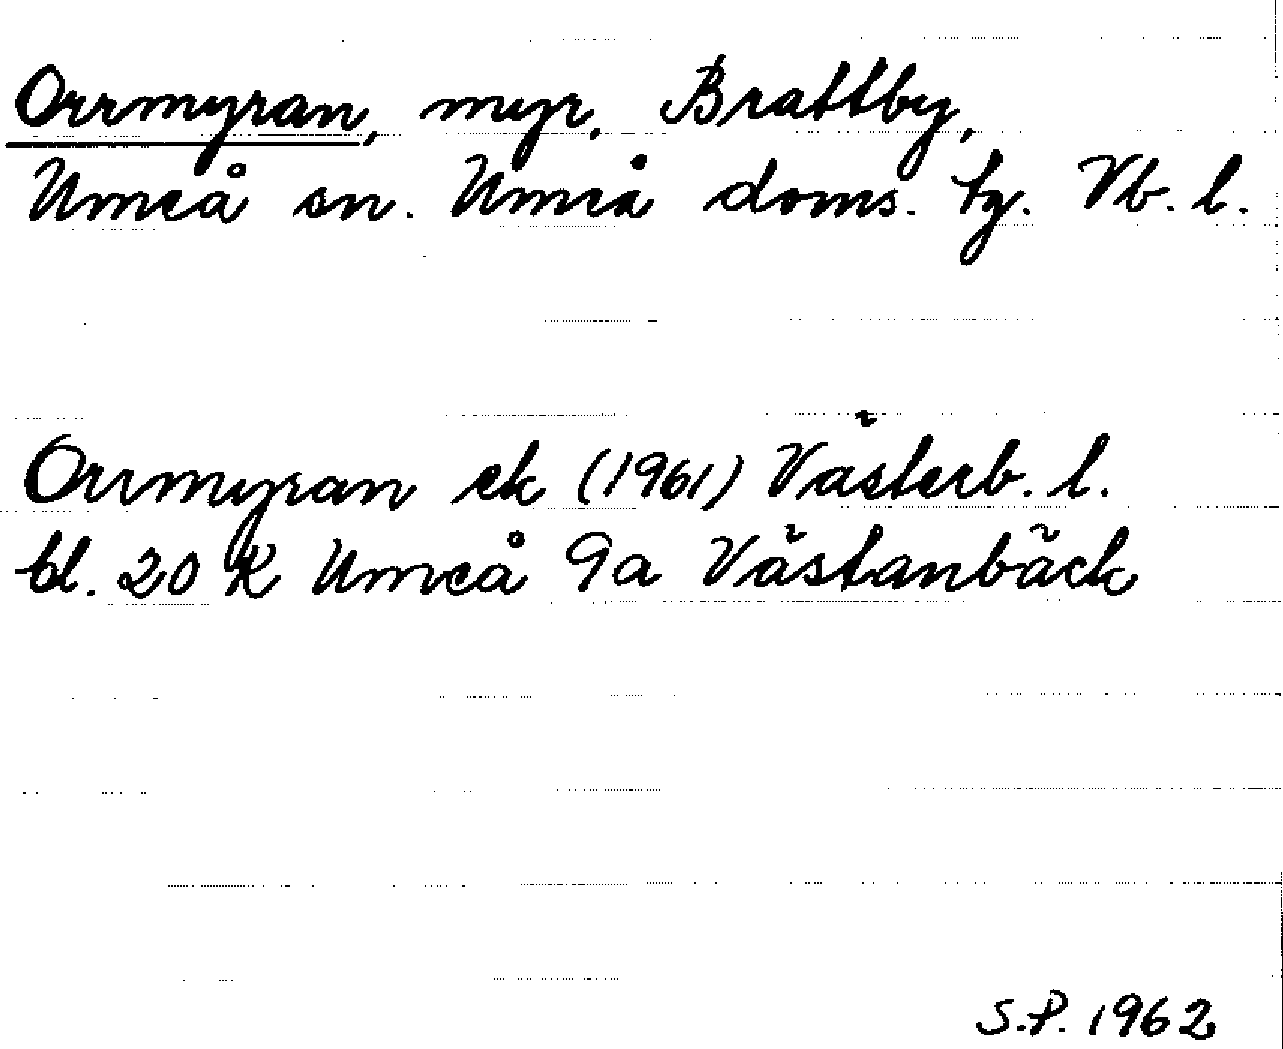 Orrmyran, myr, Brattby,
Umeå sn. Umeå doms. tg. Vb. l.
Orrmyran ek (1961) Västerb. l.
bl. 20 K Umeå 9a Västanbäck
S.P. 1962